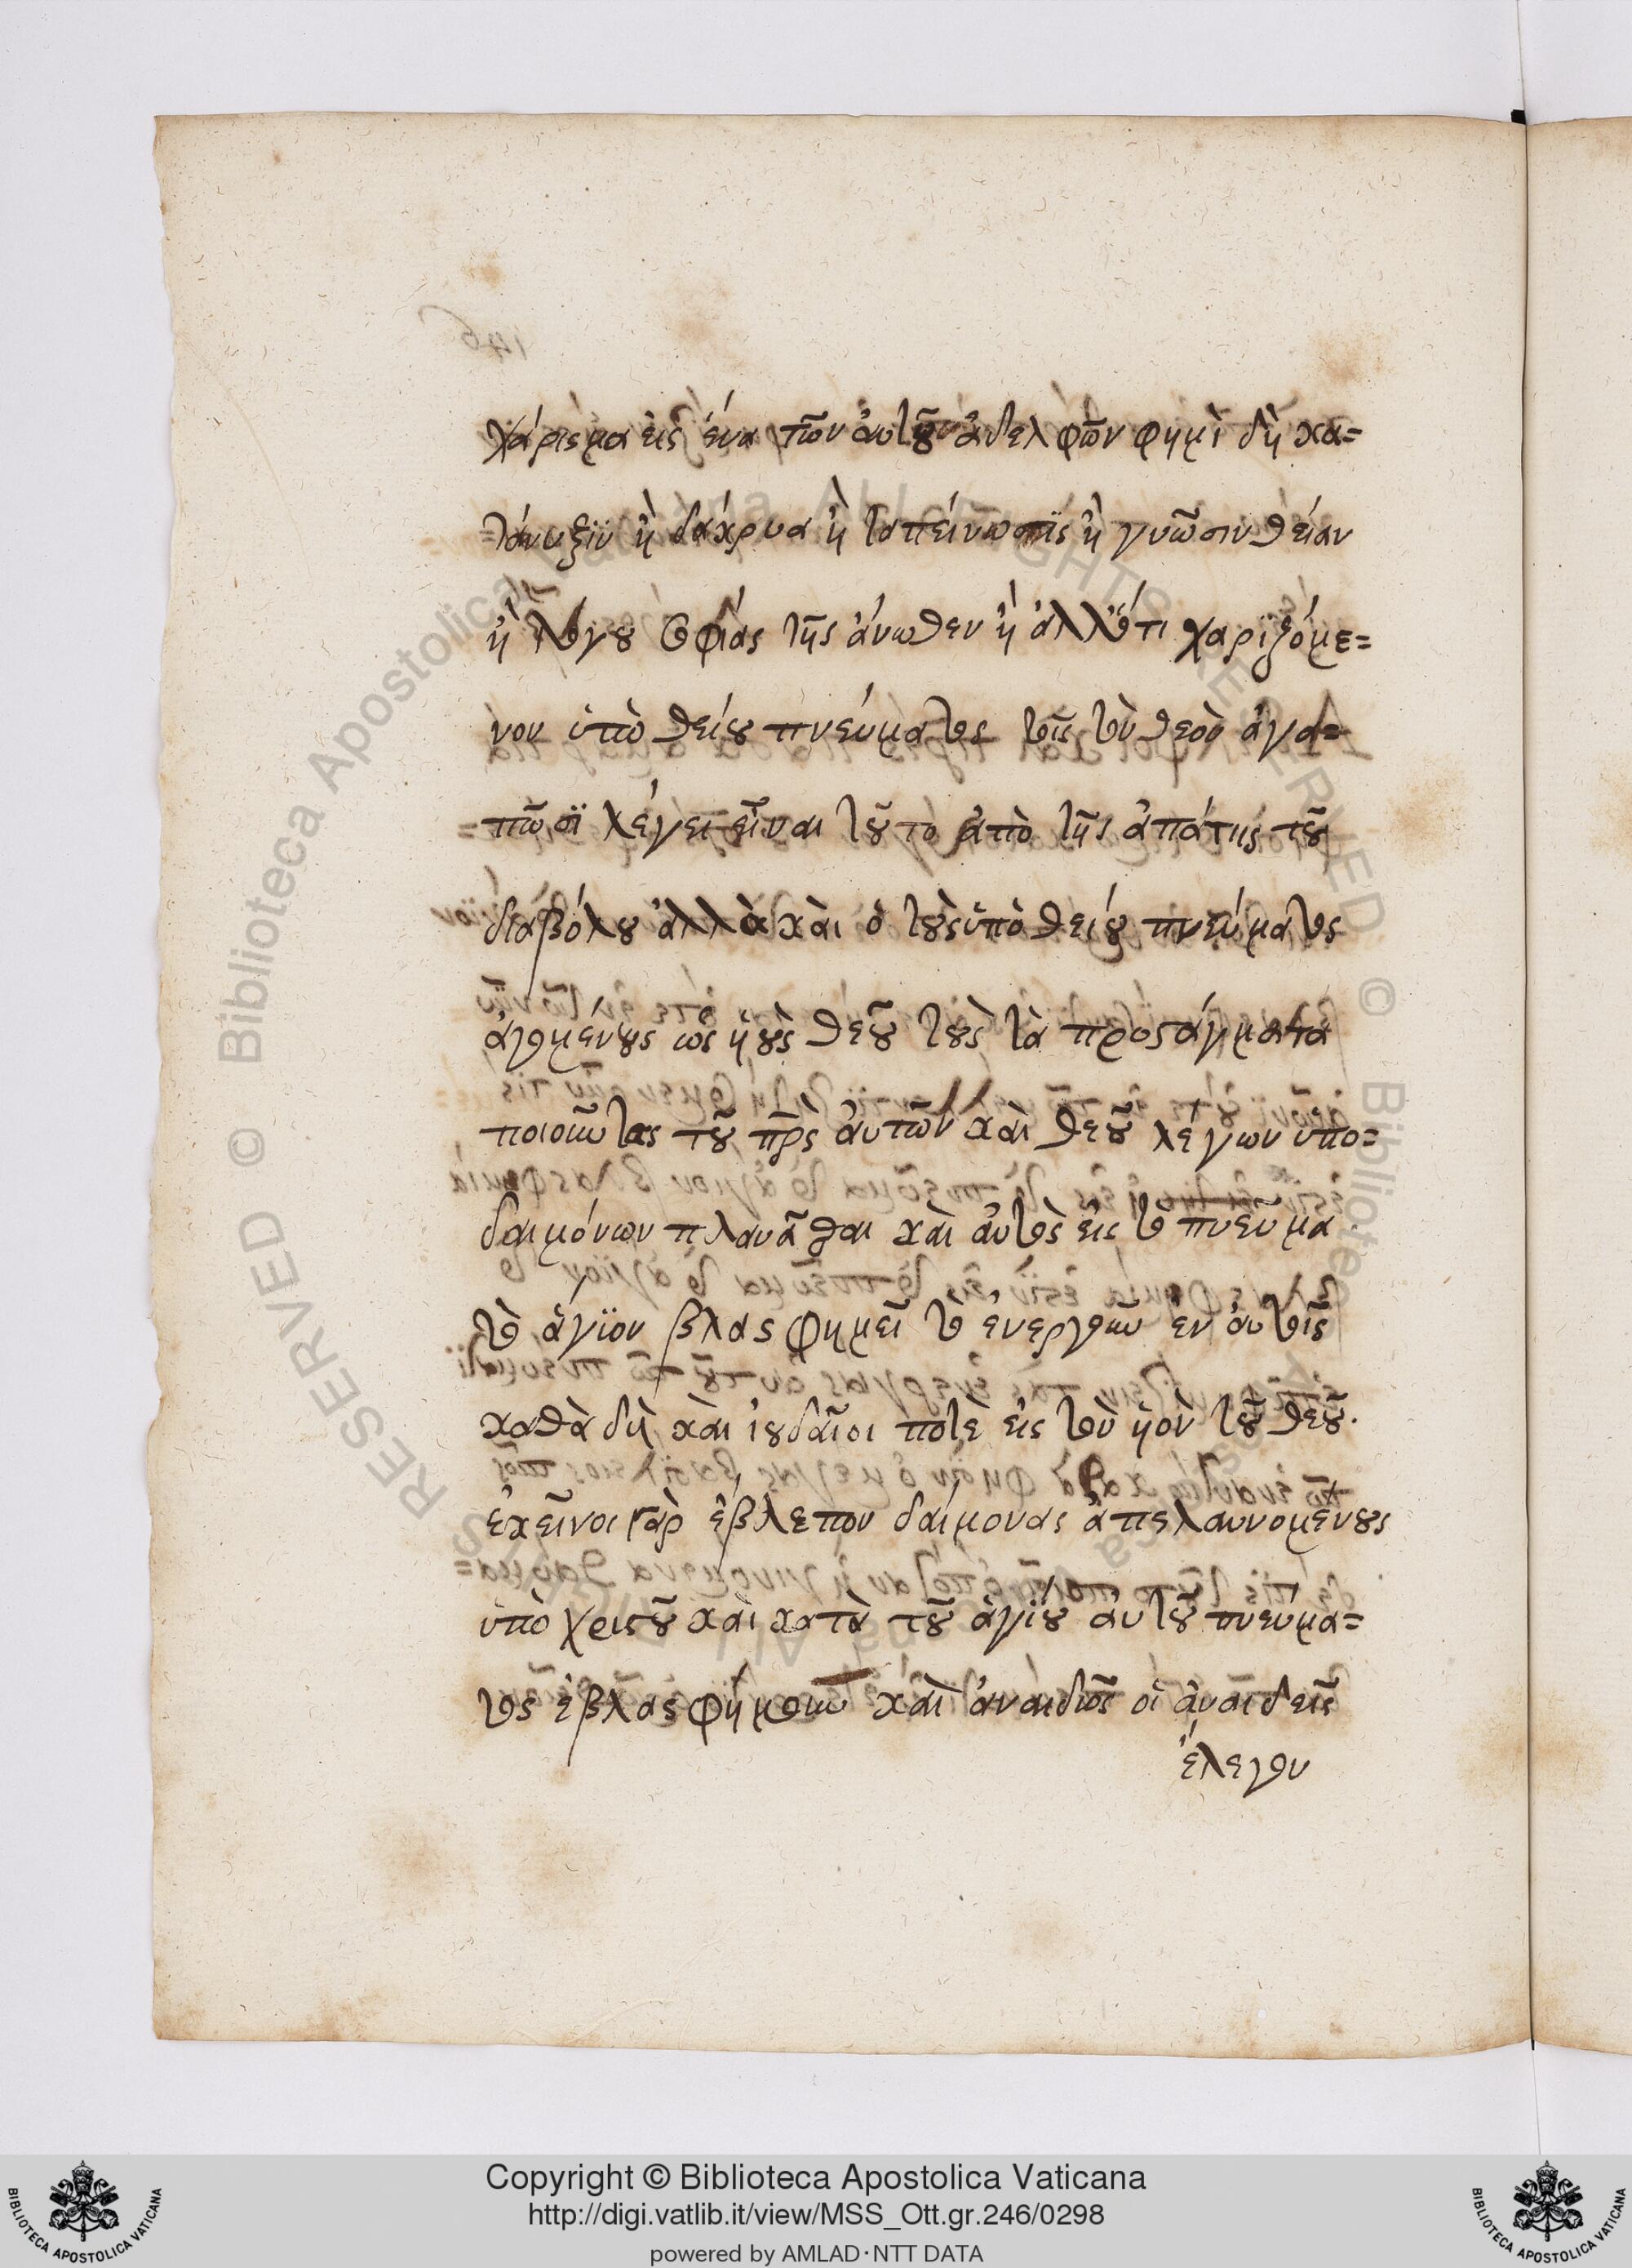 χάρισμα εἰς ἕνα τῶν ἀυτοῦ ἀδελφῶν φημὶ δὴ κα=
τάνυξϊν ἢ δάκρυα ἢ ταπείνωσϊς ἢ γνῶσιν θείαν
ἢ λόγου σοφίας τῆς ἄνωθεν ἢ ἀλλότι χαρϊζόμε=
νον ὑπὸ θείου πνεύματος τοῖς τὸν θεὸν ἀγα=
πῶσϊ λέγει εἶναι τοῦτο ἀπὸ τῆς ἀπάτης τοῦ
διαβόλου ἀλλὰ κὰι ὁ τοὺς ὑπὸ θείου πνεύματος
ἀγομένους ὡς ἡοὺς θεοῦ τοὺς τὰ προστάγματα
ποιοῦντας τοῦ πρς ἀυτῶν κὰι θεοῦ λέγων ὑπο=
δαιμόνων πλανᾶσθαι κὰι ἀυτὸς εἰς τὸ πνεῦμα
τὸ ἅγϊον βλασφημεῖ τὸ ἐνεργοῦν ἐν ἀυτοῖς
καθὰ δὴ κὰι ἰουδαῖοι ποτὲ εἰς τὸν ἡὸν τοῦ θεοῦ.
ἐκεῖνοι γὰρ ἔβλεπον δαίμονας ἀπελαυνομένους
ὑπὸ χριστοῦ κὰι κατὰ τοῦ ἁγϊου ἀυτοῦ πνεύμα=
τος ἐβλασφήμουν κὰι ἀναιδῶς οἱ ἀναιδεῖς
ἔλεγον
Copyright © Biblioteca Apostolica Vaticana
http://digi.vatlib.it/view/MSS_Ott.gr.246/0298
powered by AMLAD·NTT DATA
BIBLIOTECA APOSTOLICA VATICANA
BIBLIOTECA APOSTOLICA VATICANA